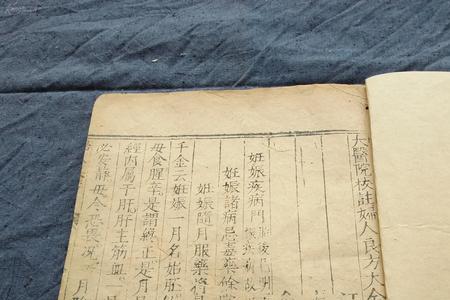 太醫院校註婦人良方大全
妊娠疾病門
妊娠諸病忌毒藥條
妊娠隨月服藥將
千金云妊娠一月名始胚
毋食腥辛是謂終正是月
經內屬于肝肝主筋血
必安靜毋令恐畏